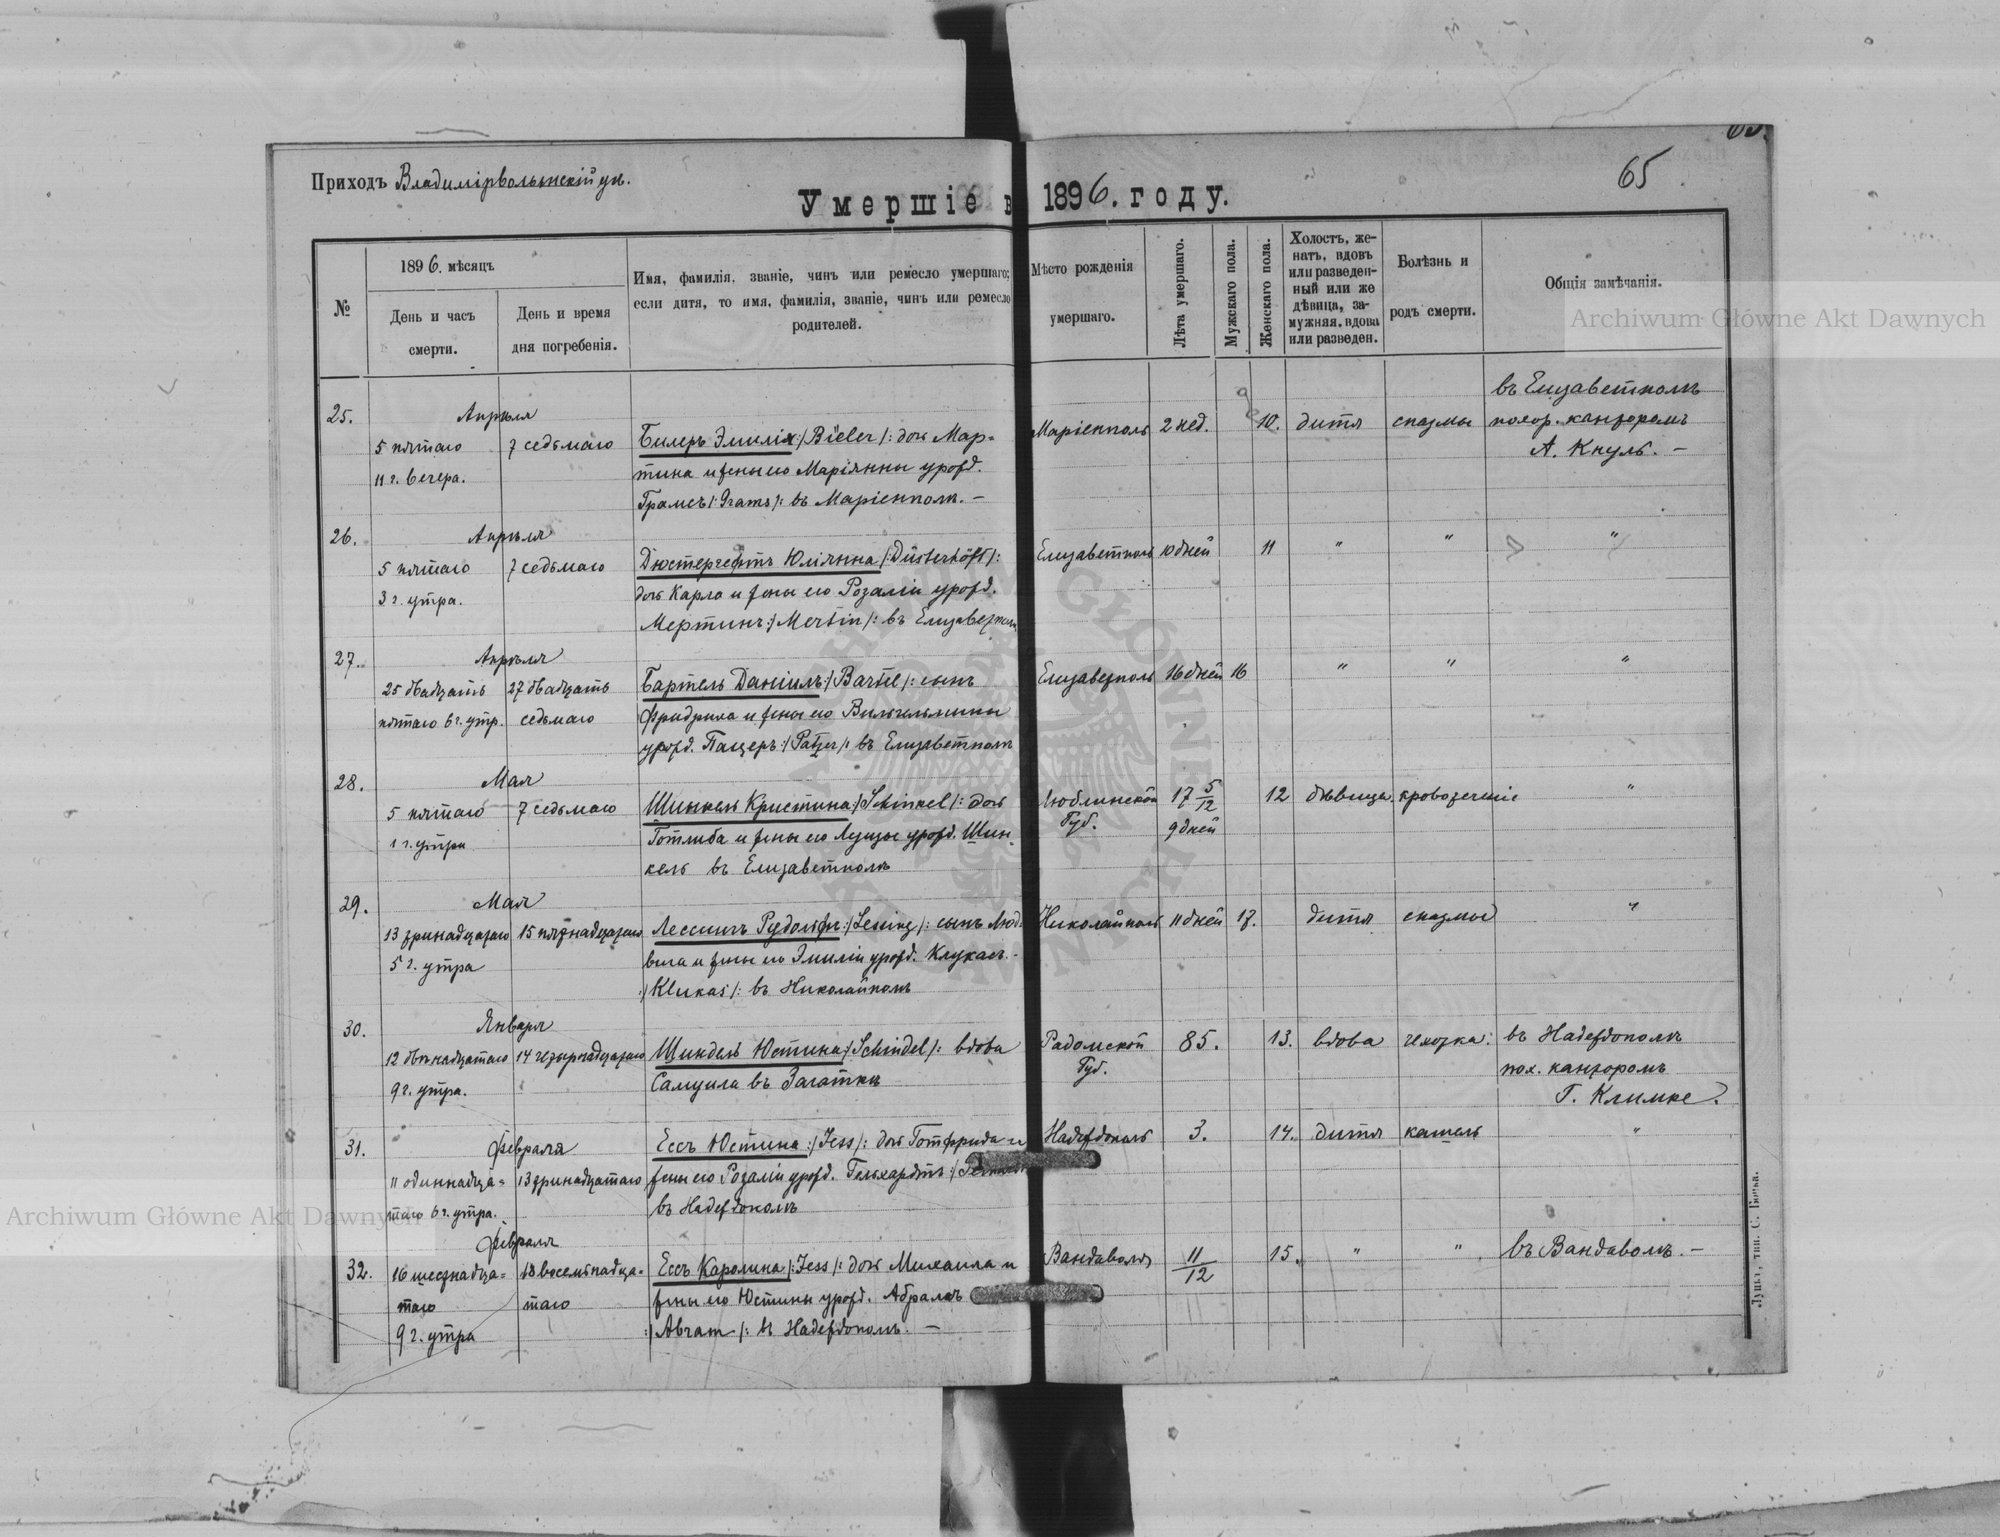 65
Приходъ Владимірволынскій ук.
65
Умершіе в 1896. году.
№
1896. мѣсяцъ
День и часъ
смерти.
День и время
дня погребенія.
Имя, фамилія, званіе, чинъ или ремесло умершаго;
если дитя, то имя, фамилія, званіе, чинъ или ремесло
родителей.
Мѣсто рожденія
умершаго.
Лѣта умершаго.
Мужскаго пола.
Женскаго пола.
Холостъ, же-
натъ, вдовъ
или разведен-
ный или же
дѣвица, за-
мужняя, вдова
или разведен.
Болѣзнь и
родъ смерти.
Общія замѣчанія.
Archiwum Główne Akt Dawnych
въ Елизаветполѣ
25. Апрѣля
похор. канторомъ
5 пятаго 7 седьмаго Билеръ Эмилія :/Bieler/: дочь Мар= Маріенполь 2 нед. 10. дитя спазмы
А. Кнуль. –
11 ч. вечера. тина и жены его Маріянны урожд.
Грамсъ /: Grams /: въ Маріенполѣ. –
26. Апрѣля
5 пятаго 7 седьмаго Дюстергефтъ Юліянна /: Düsterhöft /: Елизаветполь 10 дней 11 " " "
3 ч. утра. дочь Карла и жены его Розаліи урожд.
Мертинъ :/ Mertin /: въ Елизаветполѣ
27. Апрѣля
25 двадцать 27 двадцать Бартель Даніилъ :/ Bartel /: сынъ Елизаветполь 16 дней 16 " " "
пятаго 6 ч. утр. седьмаго Фридриха и жены его Вильгельмины
урожд. Пацеръ :/ Patzer /: въ Елизаветполѣ
28. Мая
5 пятаго 7 седьмаго Шинкель Кристина :/ Schinkel /: дочь Люблинской 17 5/12 12 дѣвица кровотеченіе "
1 ч. утра Готлиба и жены его Луизы урожд. Шин- Губ. 9 дней
кель въ Елизаветполѣ
29. Мая
13 тринадцатаго 15 пятнадцатаго Лессингъ Рудольфъ :/ Lesing /: сынъ Люд- Николайполь 11 дней 17. дитя спазмы "
5 ч. утра вига и жены его Эмиліи урожд. Клукасъ. -
:/ Klukas /: въ Николайполѣ
30. Января
12 двѣнадцатаго 14 четырнадцатаго Шиндель Юстина :/ Schindel /: вдова Радомской 85. 13. вдова чехотка: въ Надеждополѣ
9 ч. утра. Самуила въ Загаткѣ Губ. пох. канторомъ
Г. Климке.
31. Февраля Ессъ Юстина :/ Jess /: дочь Готфрида и Надеждополь 3. 14. дитя кашель "
11 одиннадца= 13 тринадцатаго жены его Розаліи урожд. Гельхардтъ
таго 6 ч. утра. въ Надеждополѣ
Archiwum Główne Akt Dawnych
Февраля
32. 16 шестнадца= 18 восемнадца- Ессъ Каролина /: Jess /: дочь Михаила и Вандаволя 11/12 15. " " въ Вандаволѣ. –
таго таго жены его Юстины урожд. Абрамъ
9 ч. утра :/ Abram /: въ Надеждополѣ. –
Луцкъ, тип. С. Бинъа.